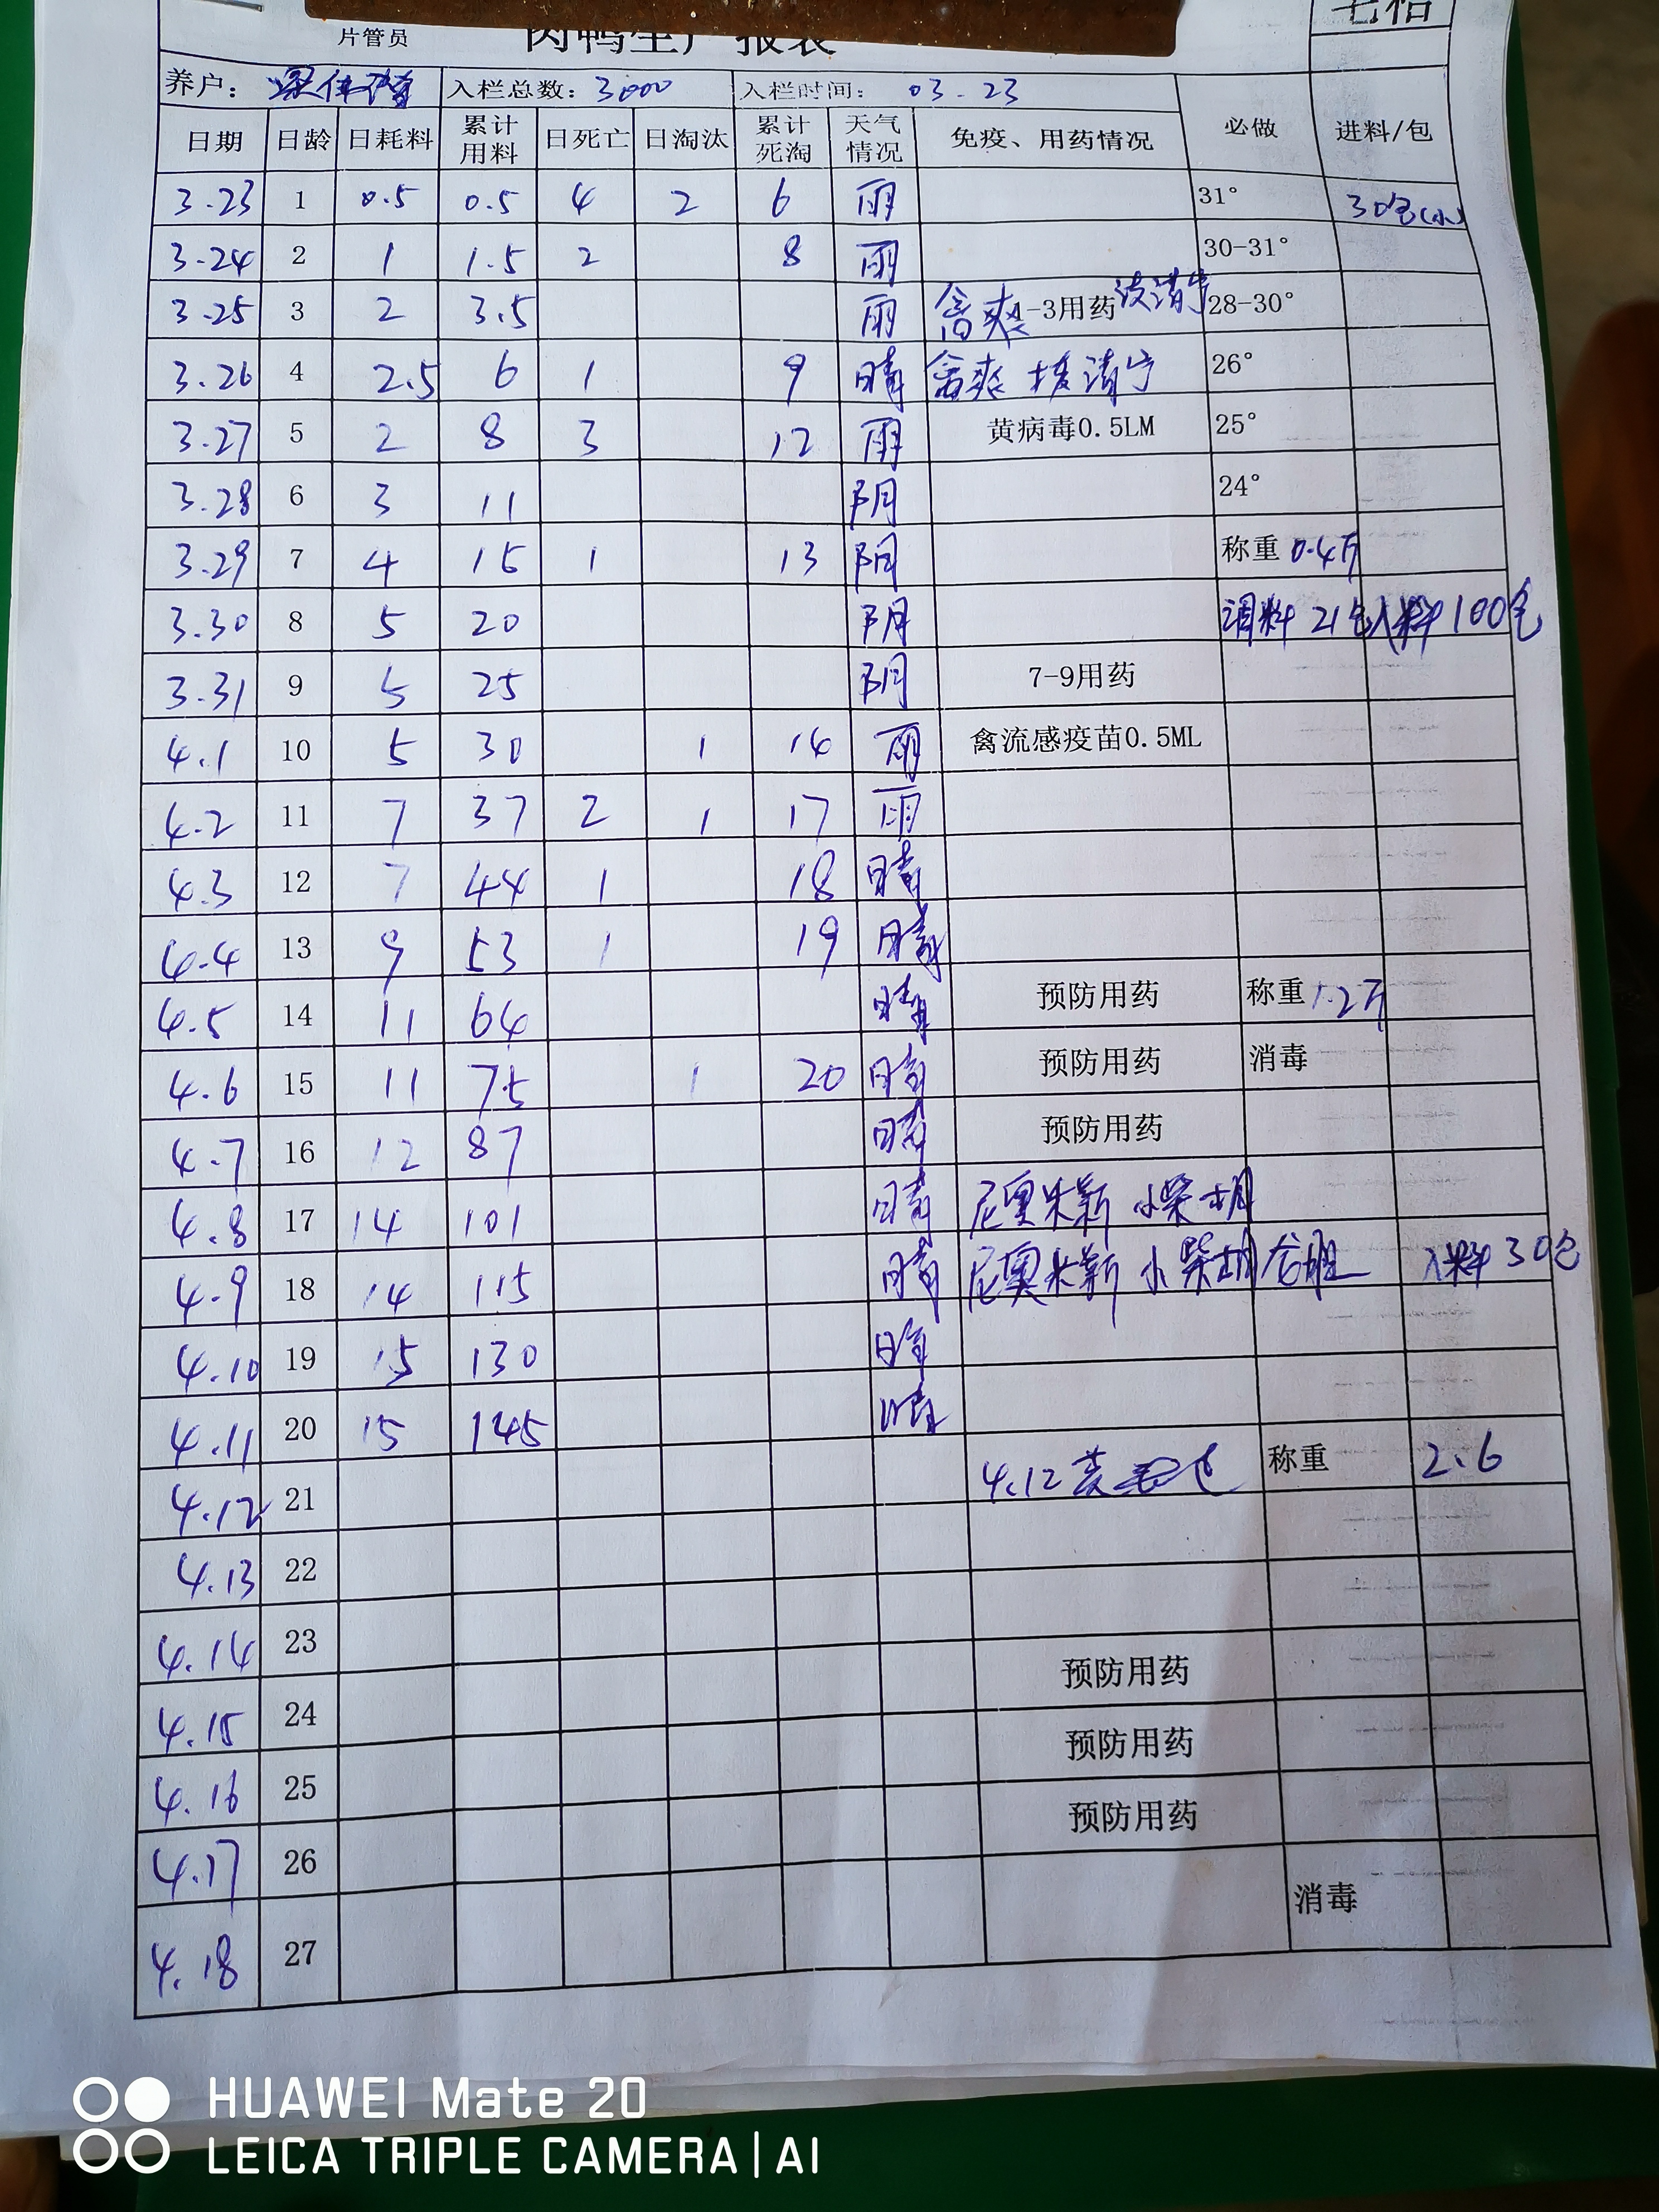 片管员 肉鸭生产报表
养户： 入栏总数：3000 入栏时间： 03.23
日期 日龄 日耗料 累计用料 日死亡 日淘汰 累计死淘 天气情况 免疫、用药情况 必做 进料/包
3.23 1 0.5 0.5 4 2 6 雨 31° 30包(小)
3.24 2 1 1.5 2 8 雨 30-31°
3.25 3 2 3.5 雨 禽爽 1-3用药 清宁 28-30°
3.26 4 2.5 6 1 9 晴 禽爽 清宁 26°
3.27 5 2 8 3 12 雨 黄病毒0.5LM 25°
3.28 6 3 11 阴 24°
3.29 7 4 15 1 13 阴 称重 0.4斤
3.30 8 5 20 阴 调料 21包 入料 100包
3.31 9 5 25 阴 7-9用药
4.1 10 5 30 1 14 雨 禽流感疫苗0.5ML
4.2 11 7 37 2 1 17 雨
4.3 12 7 44 1 18 晴
4.4 13 9 53 1 19 晴
4.5 14 11 64 晴 预防用药 称重 1.2斤
4.6 15 11 75 1 20 晴 预防用药 消毒
4.7 16 12 87 晴 预防用药
4.8 17 14 101 晴 尼奥米新 小柴胡
4.9 18 14 115 晴 尼奥米新 小柴胡 龙胆 入料 30包
4.10 19 15 130 晴
4.11 20 15 145 晴
4.12 21 4.12 称重 2.6
4.13 22
4.14 23 预防用药
4.15 24 预防用药
4.16 25 预防用药
4.17 26 消毒
4.18 27
HUAWEI Mate 20
LEICA TRIPLE CAMERA | AI